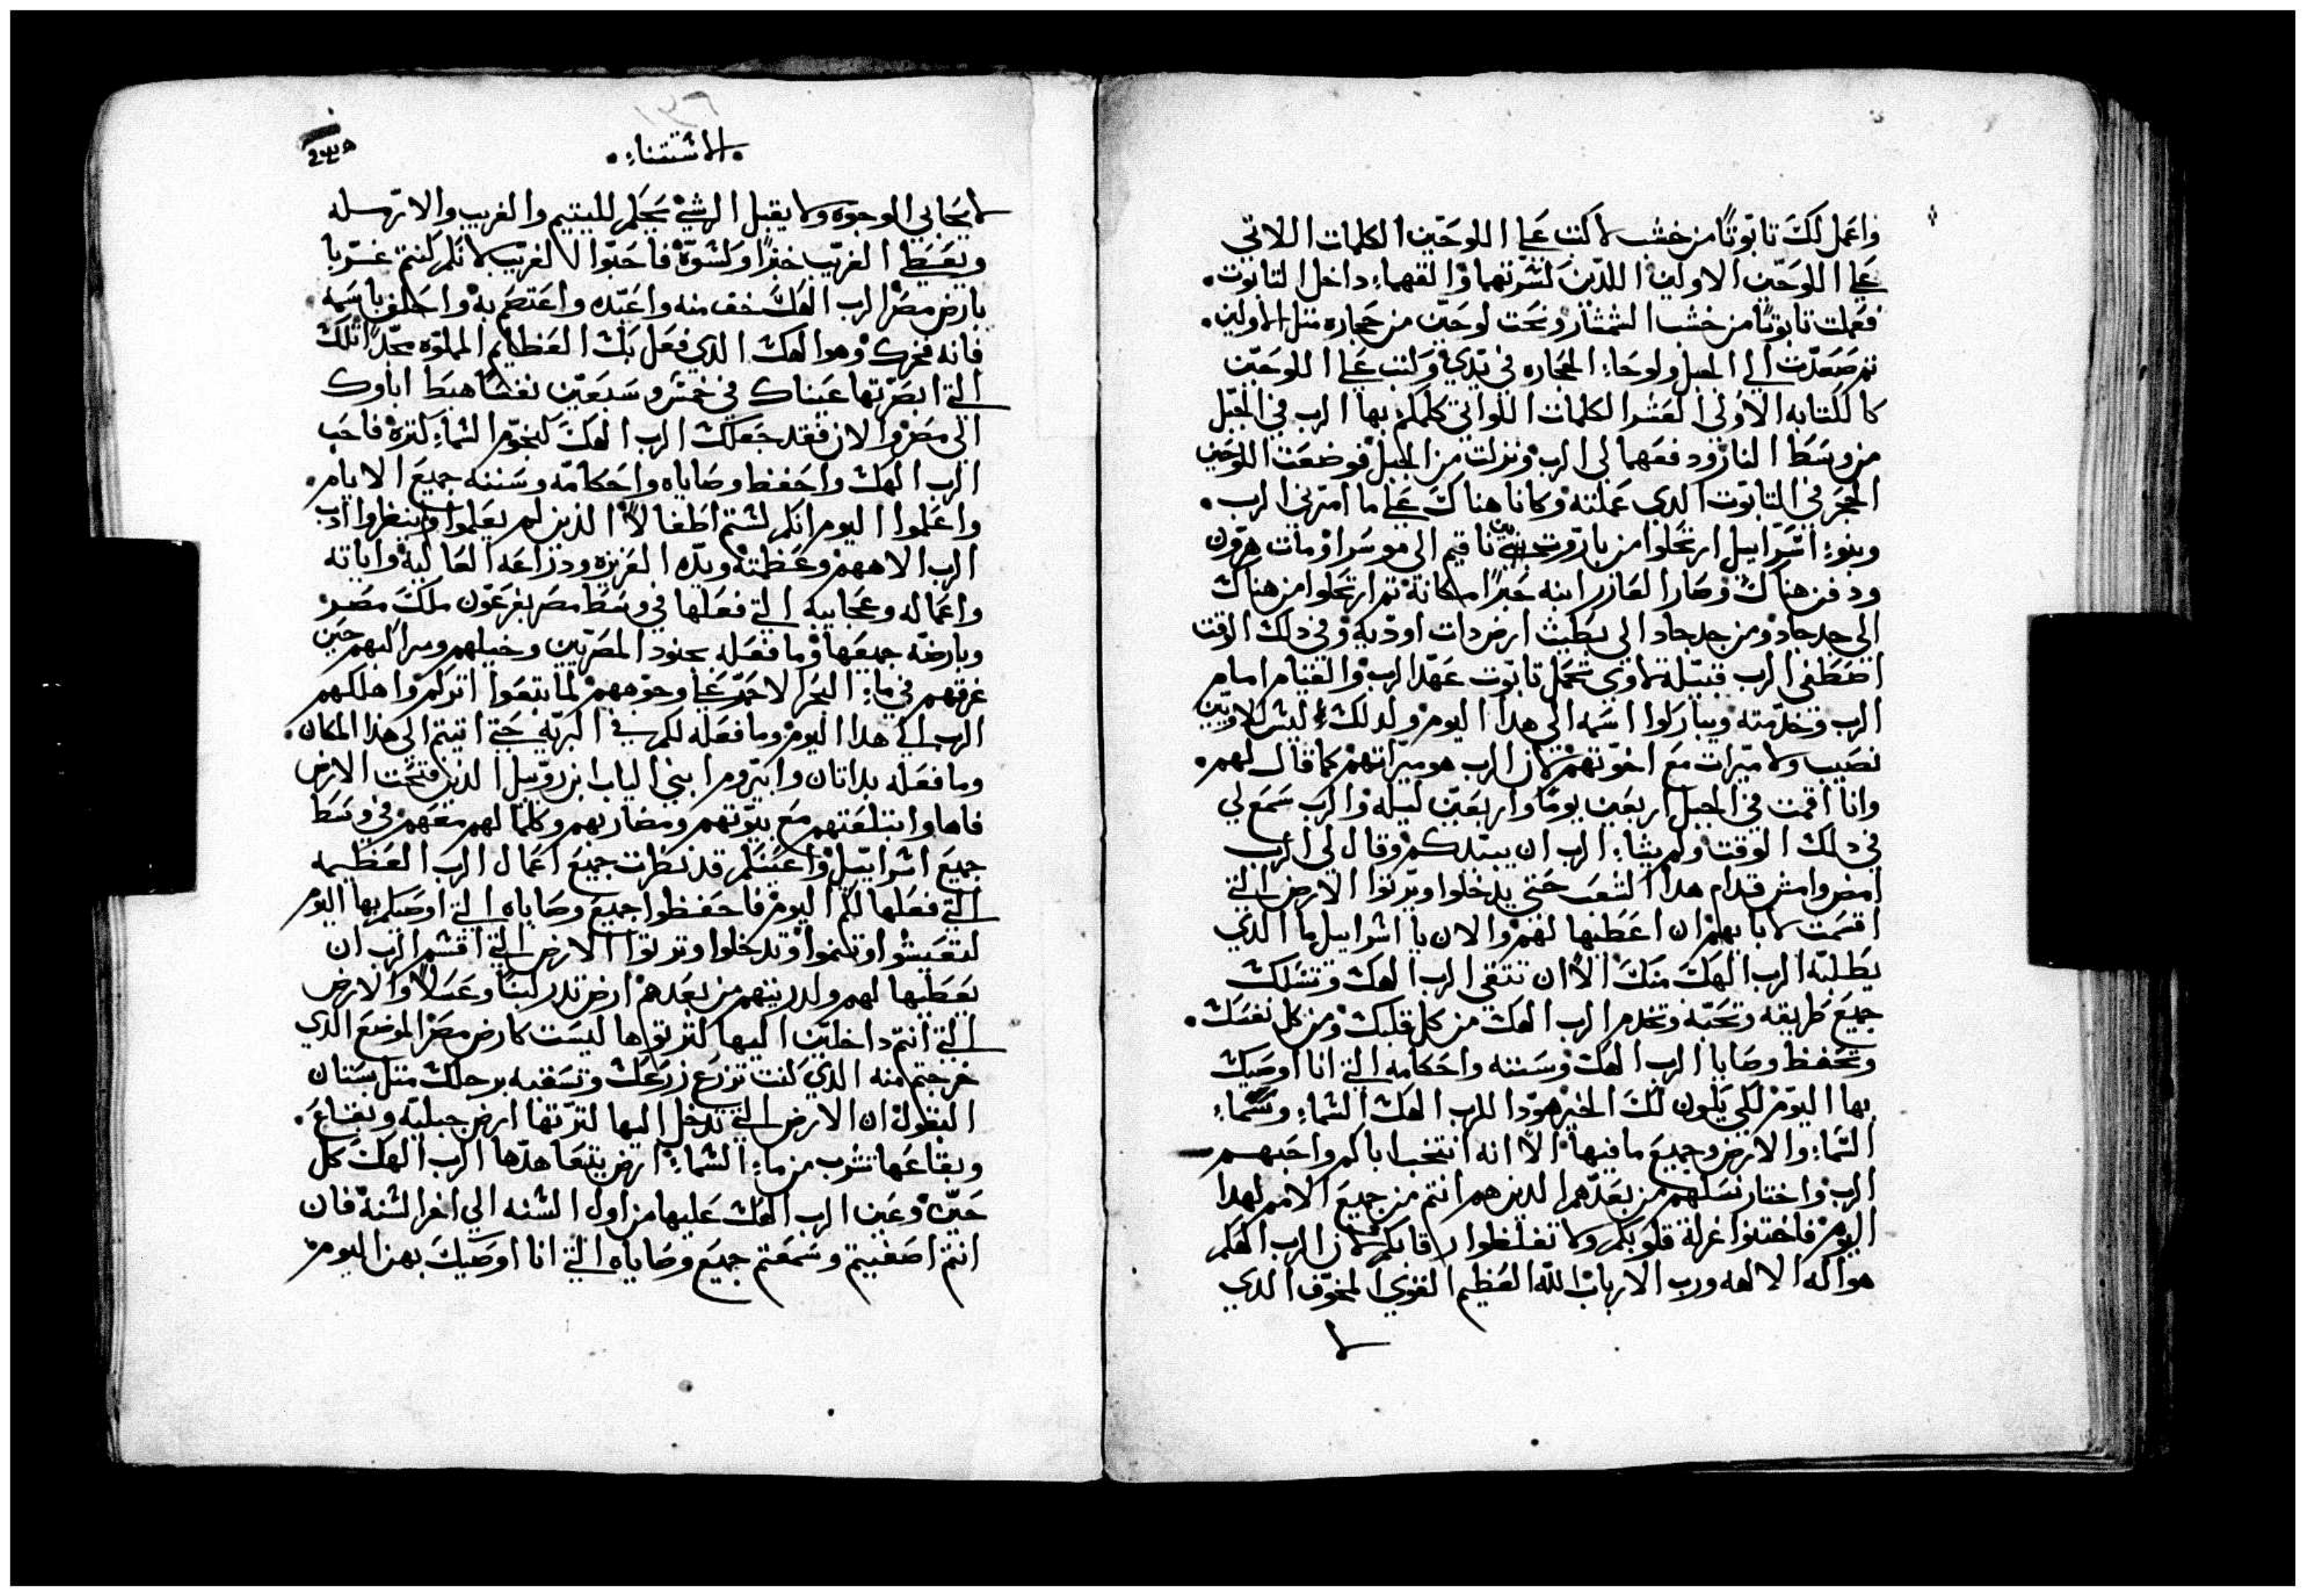 واعمل لك تابوتًا من خشب لاكتب علي اللوحين الكلمات اللاتي
علي اللوحين الاولين اللذين كسرتهما والقهما داخل التابوت.
فعملت تابوتًا من خشب الشمشار ونحت لوحين من حجاره متل الاولين.
تم صعدت الي الجبل ولوحا الحجاره في يدي وكتب علي اللوحين
كالكتابه الاولى العشر الكلمات اللواتي كلمكم بها الرب في الجبل
من وسط النار ودفعهما لي الرب ونزلت من الجبل فوضعت اللوحين
الحجر في التابوت الدي عملته وكانا هناك علي ما امرني الرب.
وبنو اسراييل ارتحلوا من باروت بني ناقيم الى موسرا ومات هرون
ودفن هناك وصار العازر ابنه حبرًا مكانه تم ارتحلوا من هناك
الى جدجاد ومن جدجاد الى يطبث ارض دات اوديه وفي دلك الوقت
اصطفى الرب قبيلة لاوي تحمل تابوت عهد الرب والقيام امام
الرب وخدمته ويباركوا اسمه الى هدا اليوم ولدلك ليس للاويين
نصيب ولا ميرات مع اخوتهم لان الرب هو ميراتهم كما قال لهم.
وانا اقمت في الجبل اربعين يومًا واربعين ليله والرب سمع لي
في دلك الوقت ولم يشا الرب ان يبيدكم وقال لي الرب
امض وامش قدام هدا الشعب حتى يدخلوا ويرتوا الارض التي
اقسمت لابايهم ان اعطيها لهم والان يا اسراييل ما الدي
يطلبه الرب الهك منك الا ان تتقى الرب الهك وتسلك
جميع طريقه وتحبه وتخدم الرب الهك من كل قلبك ومن كل نفسك.
وتحفظ وصايا الرب الهك وسننه واحكامه التي انا اوصيك
بها اليوم لكي يكون لك الخير هودا للرب الهك السماء وسماء
السماء والارض وجميع ما فيها الا انه انتخب اباكم واحبهم
الرب واختار نسلهم من بعدهم الدين هم انتم من جميع الامم لهدا
اليوم فاختنوا غرلة قلوبكم ولا تغلظوا رقابكم لان الرب الهكم
هو اله الالهه ورب الارباب الله العظيم القوي المخوف الدي
لا
الاستتناء.
لا يحابي الوجوه ولا يقبل الرشي يحكم لليتيم والغريب والارمله
ويعطي الغريب خبزًا وكسوة فاحبوا الغريب لانكم كنتم غربا
بارض مصر الرب الهك خف منه واعبده واعتصم به واحلف باسمه.
فانه فخرك وهو الهك الدي فعل بك العظايم المملوه مجدًا تلك
التي ابصرتها عيناك في خمس وسبعين نفسًا هبط اباوك
الى مصر والان فقد جعلك الرب الهك كنجوم السماء كترة فاحب
الرب الهك واحفظ وصاياه واحكامه وسننه جميع الايام.
واعلموا اليوم انكم لستم اطفالاً الذين لم يعلموا وينظروا ادب
الرب الاههم وعظمته ويده العزيزه ودراعه العاليه واياته
واعماله وعجايبه التي فعلها في وسط مصر بفرعون ملك مصر
وبارضه جميعها وما فعله بجنود المصريين وخيلهم ومراكبهم حين
غرقهم في ماء البحر الاحمر علي وجوههم لما تبعوا اتركم واهلكهم
الرب الي هدا اليوم وما فعله لكم في البريه حتي اتيتم الى هذا المكان.
وما فعله بداتان وابيروم ابني الياب ابن روبيل الدين فتحت الارض
فاها وابتلعتهم مع بيوتهم ومضاربهم وكلما لهم معهم في وسط
جميع اسراييل واعينكم قد نظرت جميع اعمال الرب العظيمه
التي فعلها لكم اليوم فاحفظوا جميع وصاياه التي اوصيكم بها اليوم
لتعيشوا وتنموا وتدخلوا وترتوا الارض التي اقسم الرب ان
يعطيها لهم ولدريتهم من بعدهم ارض تدر لبنًا وعسلاً والارض
التي انتم داخلين اليها لترتوها ليست كارض مصر الموضع الدي
خرجتم منه الدي كنت تزرع زرعك وتسقيه برجلك متل بستان
البقول ان الارض التي تدخل اليها لترتها ارض جبليه وبقاع.
وبقاعها تشرب من ماء السماء ارض يتعاهدها الرب الهك كل
حين وعين الرب الهك عليها من اول السنه الي اخر السنة فان
انتم اصغيتم وسمعتم جميع وصاياه التي انا اوصيك بهن اليوم